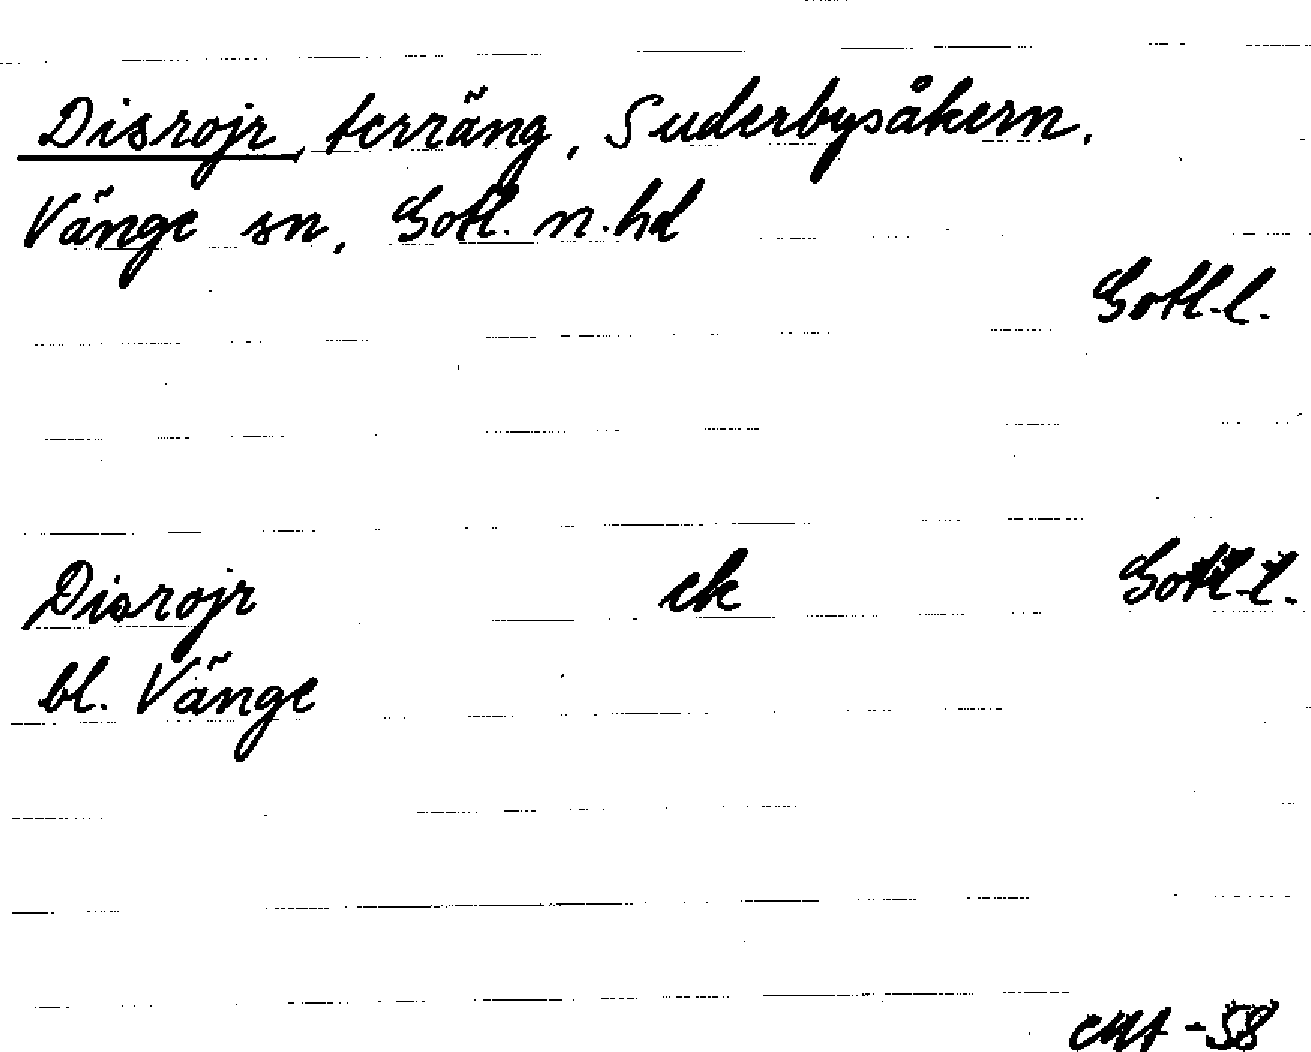 Disrojr, terräng, Suderbysåkern.
Vänge sn, Gotl. n. hd
Gotl. l.
Disrojr ek Gotl. l.
bl. Vänge
-58